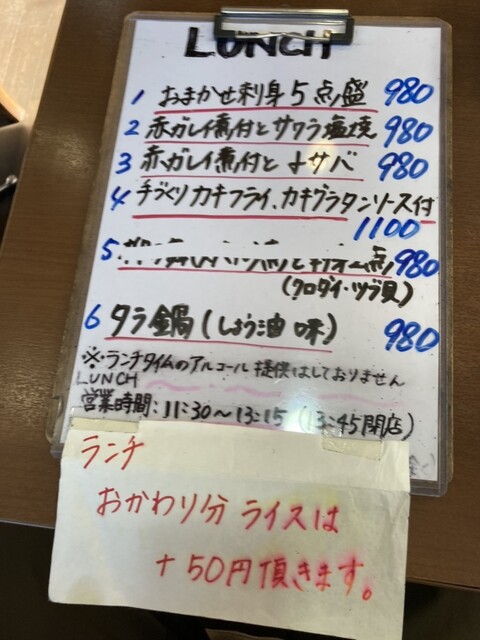 LUNCH
1 おまかせ刺身5点盛 980
2 赤ガレイ煮付とサワラ塩焼 980
3 赤ガレイ煮付と〆サバ 980
4 手づくりカキフライ、カキグラタンソース付
1100
5 点 980
(クロダイ・ツブ貝)
6 タラ鍋(しょう油味) 980
※・ランチタイムのアルコール提供はしておりません
LUNCH
営業時間:11:30~13:15 (13:45閉店)
ランチ
おかわり分 ライスは
+50円頂きます。